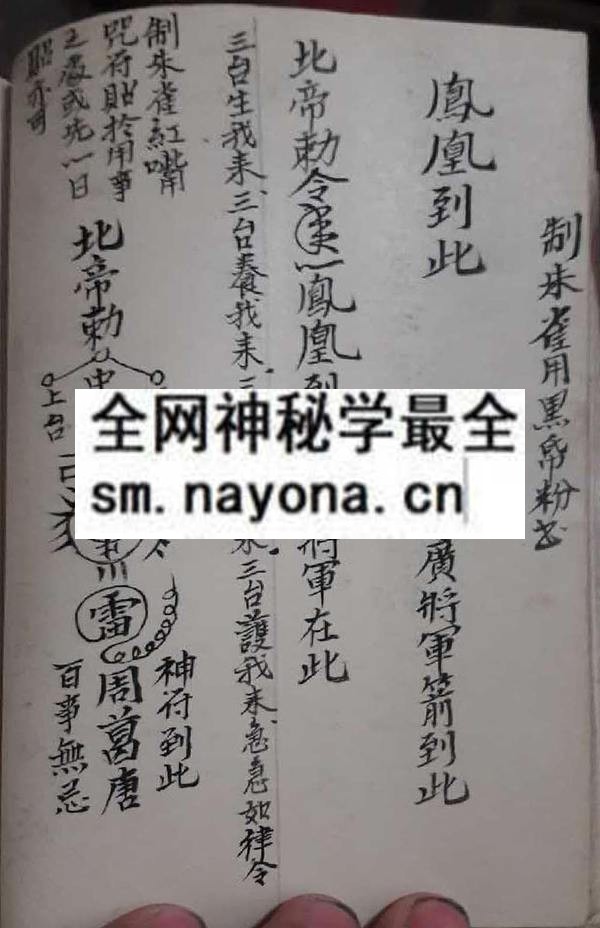 制朱雀用黑帋粉書
鳳凰到此
廣將軍箭到此
北帝勅令 鳳凰到
將軍在此
三台生我來三台養我來三
來三台護我來急急如律令
制朱雀紅嘴
咒符貼於用事
之處或先一日
貼亦可
北帝勅
中
上台
雷
神符到此
周葛唐
百事無忌
全网神秘学最全
sm.nayona.cn